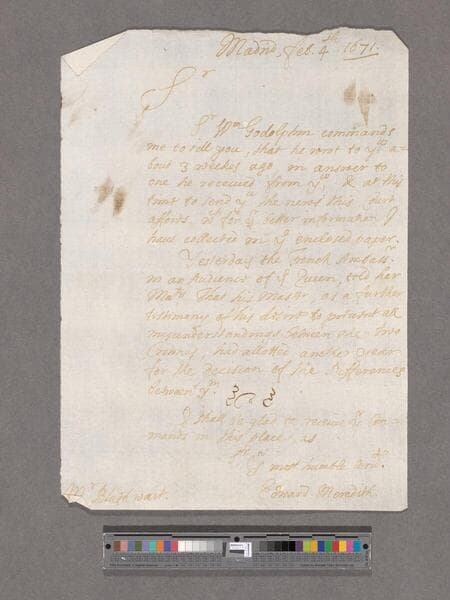 Madrid, feb. 4th 1671.
Sr
Sr Wm Godolphin commands
me to tell you, that he wrot to you a=
bout 3 weekes ago in answer to
one he received from you, & at this
time to send you the news this Court
affords, wch for ye better information I
have collected in ye enclosed paper.
Yesterday the French Ambassr
in an Audience of ye Queen, told her
Maty That his Master, as a further
testimony of his desire to prevent all
misunderstandings between the two
Crowns, had allotted another year
for the decision of the differences
between ym.
I shall be glad to receive yr Com=
mands in this place, as
Sr
Yr most humble Servt.
Edward Meredith.
Mr Blathwait.